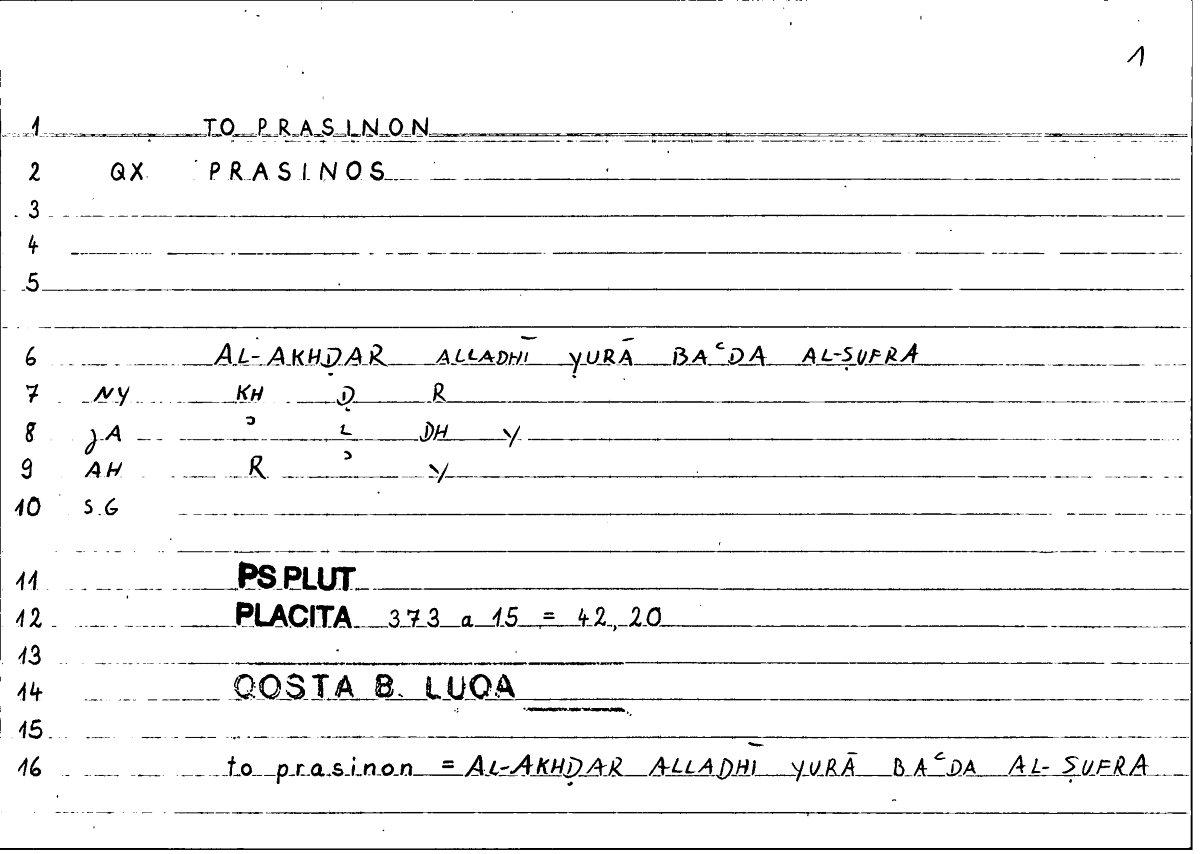 1
1 TO PRASINON
2 QX PRASINOS
3
4
5
6 AL-AKHḌAR ALLADHĪ YURĀ BAʿDA AL-ṢUFRA
7 NY KH Ḍ R
8 JA ʾ L DH Y
9 AH R ʾ Y
10 S.G
11 PS PLUT
12 PLACITA 373 a 15 = 42,20
13
14 QOSTA B. LUQA
15
16 to prasinon = AL-AKHḌAR ALLADHĪ YURĀ BAʿDA AL-ṢUFRA